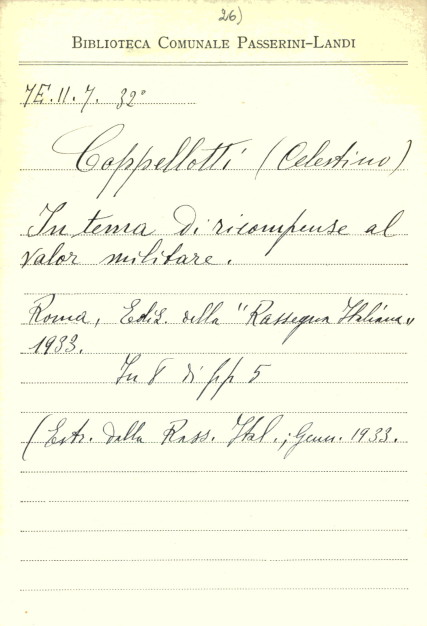 26)
BIBLIOTECA COMUNALE PASSERINI-LANDI
7E.II.7. 32°
Cappellotti (Celestino)
In tema di ricompense al
valor militare.
Roma, Ediz. della "Rassegna Italiana"
1933.
In 8 di pp 5
(Estr. dalla Rass. Ital.; Genn. 1933.